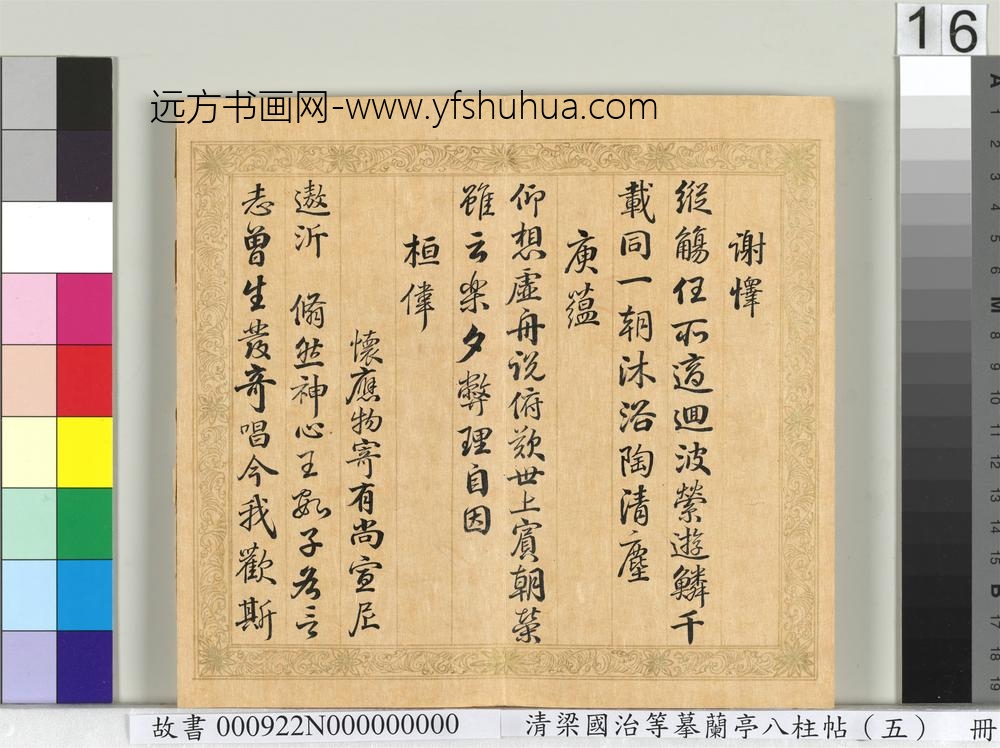 16
远方书画网-www.yfshuhua.com
谢懌
縱觴任所適迴波縈遊鱗千
載同一朝沐浴陶清塵
庾蘊
仰想虛舟说俯歎世上賓朝榮
雖云楽夕弊理自因
桓偉
懷應物寄有尚宣尼
遨沂 翛然神心王數子各言
志曾生發奇唱今我歡斯
A 1 2 3 4 5 6 M 8 9 10 11 12 13 14 15 B 17 18 19
故書 000922N000000000 清梁國治等摹蘭亭八柱帖（五） 冊